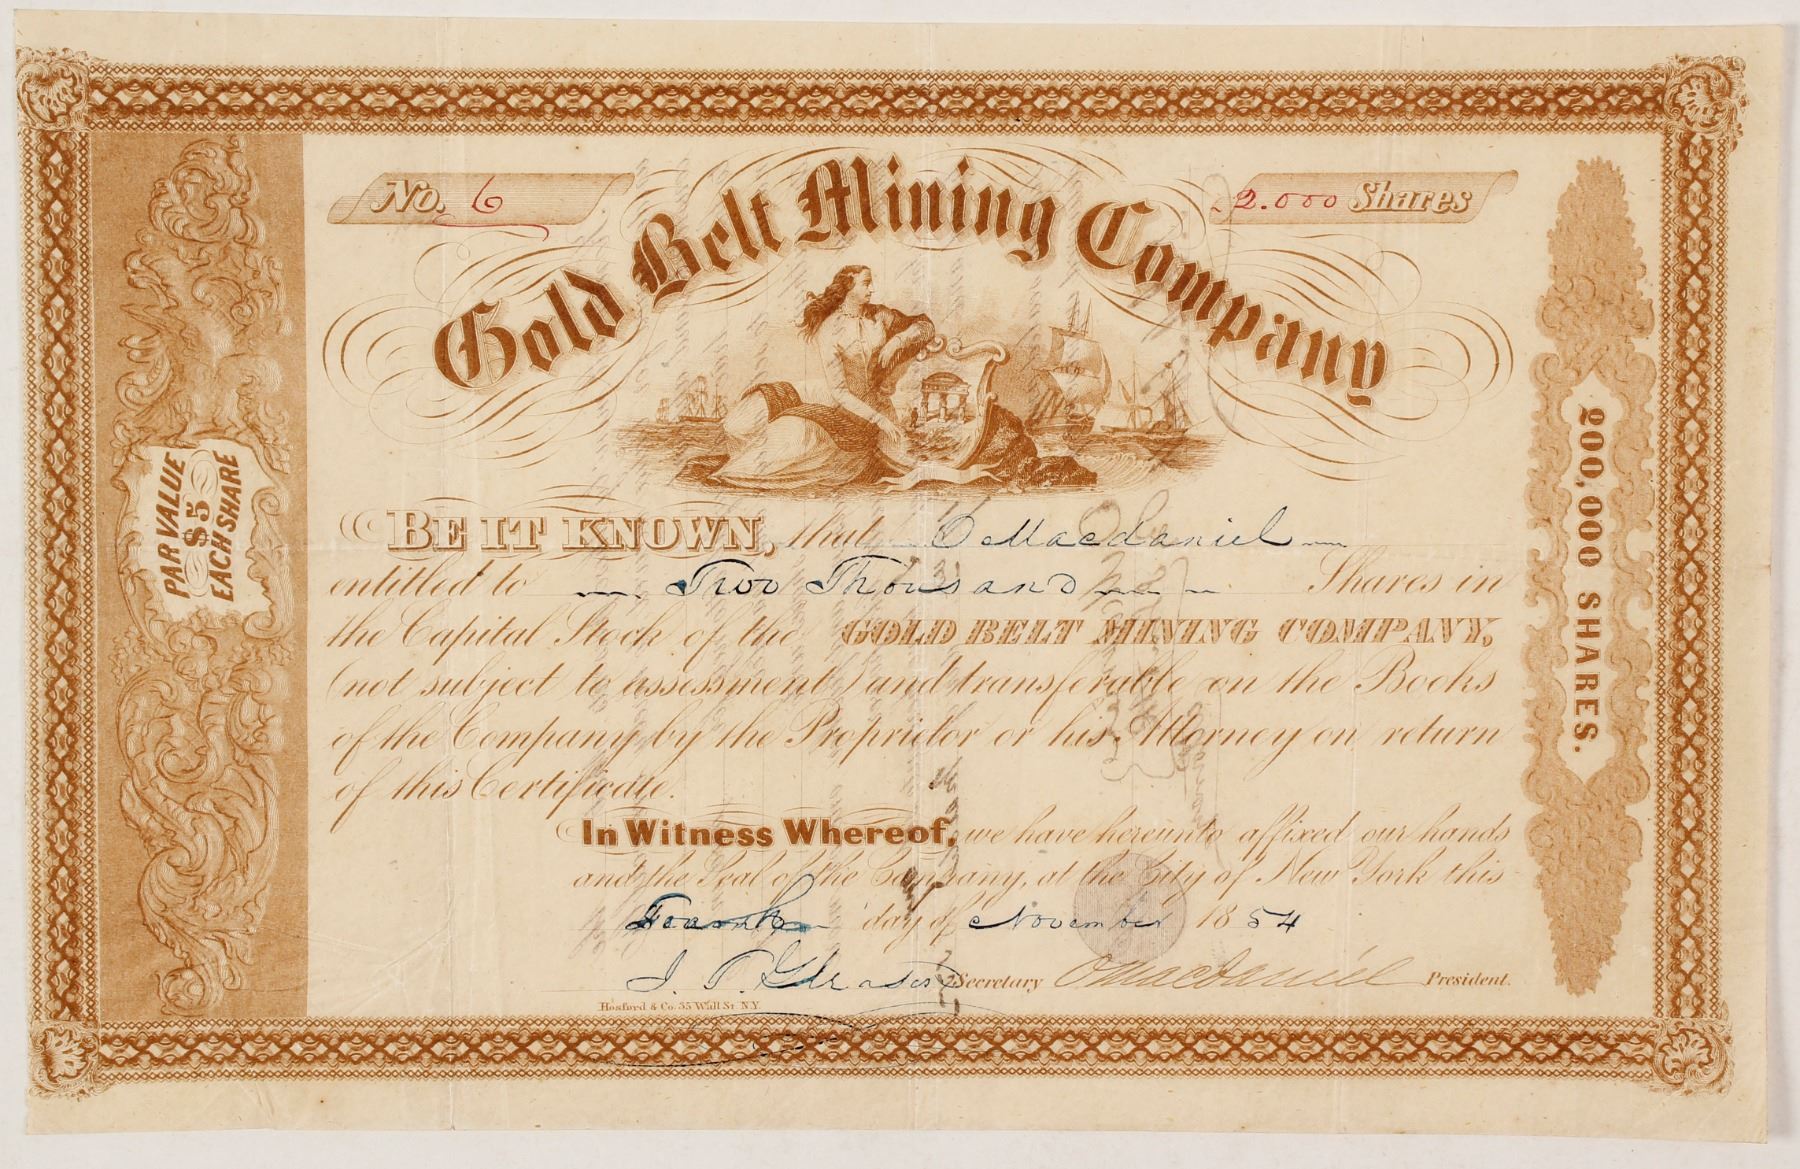 No. 6
2.000 Shares
Gold Belt Mining Company
PAR VALUE
$5
EACH SHARE
200,000 SHARES.
BE IT KNOWN, that O Macdaniel
entitled to Two Thousand Shares in
the Capital Stock of the GOLD BELT MINING COMPANY,
(not subject to assessment) and transferable on the Books
of the Company by the Proprietor or his Attorney on return
of this Certificate.
In Witness Whereof, we have hereunto affixed our hands
and the Seal of the Company, at the City of New York this
Fourth day of November 1854
J. P. Secretary O MacDaniel President.
Hosford & Co. 35 Wall St. N.Y.